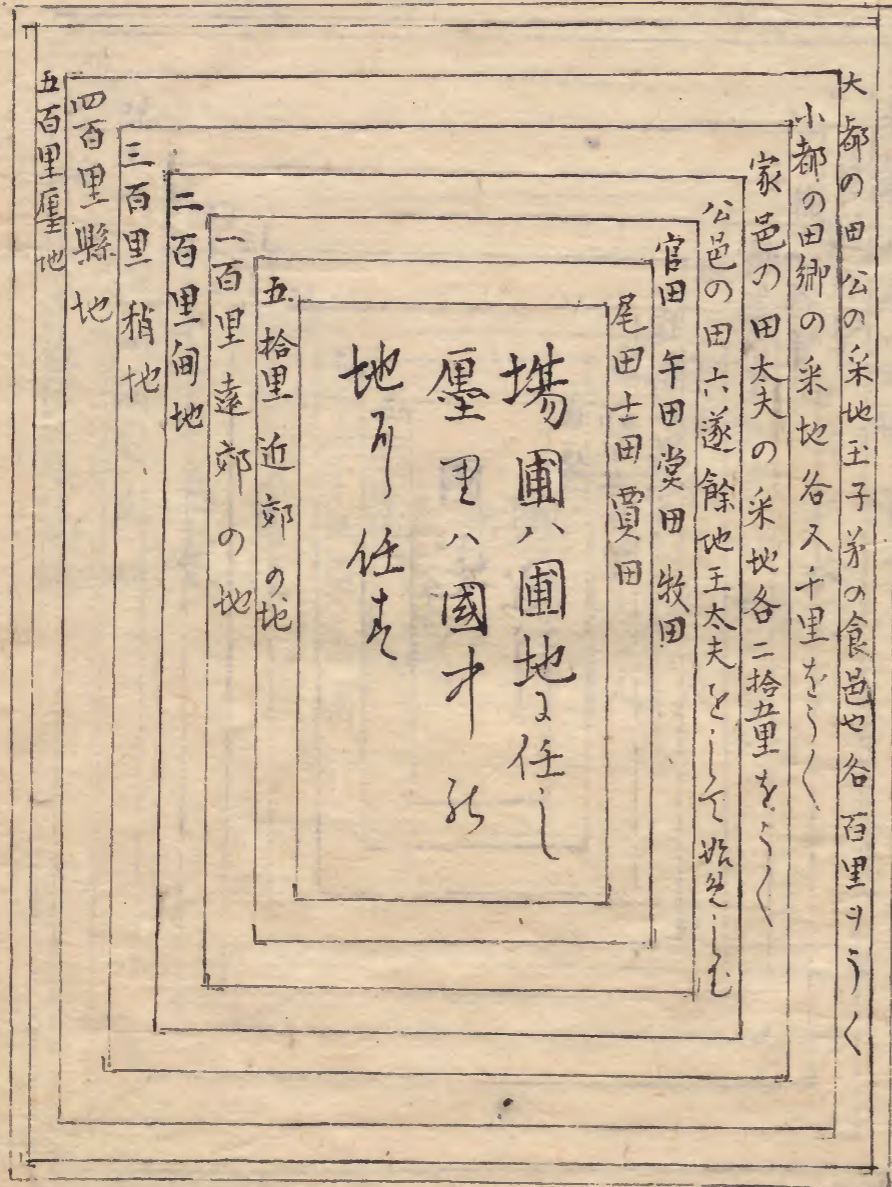 大都の田公の采地王子弟の食邑也各百里ヲうく
小都の田郷の采地各五千里をうく
家邑の田太夫の采地各二拾五里をうく
公邑の田六遂餘地王太夫をして始見しむ
官田 牛田 賞田 牧田
尾田士田賈田
場圃ハ圃地に任し
廛里ハ國中の
地に任す
五拾里 近郊の地
一百里 遠郊の地
二百里甸地
三百里 稍地
四百里縣地
五百里畺地